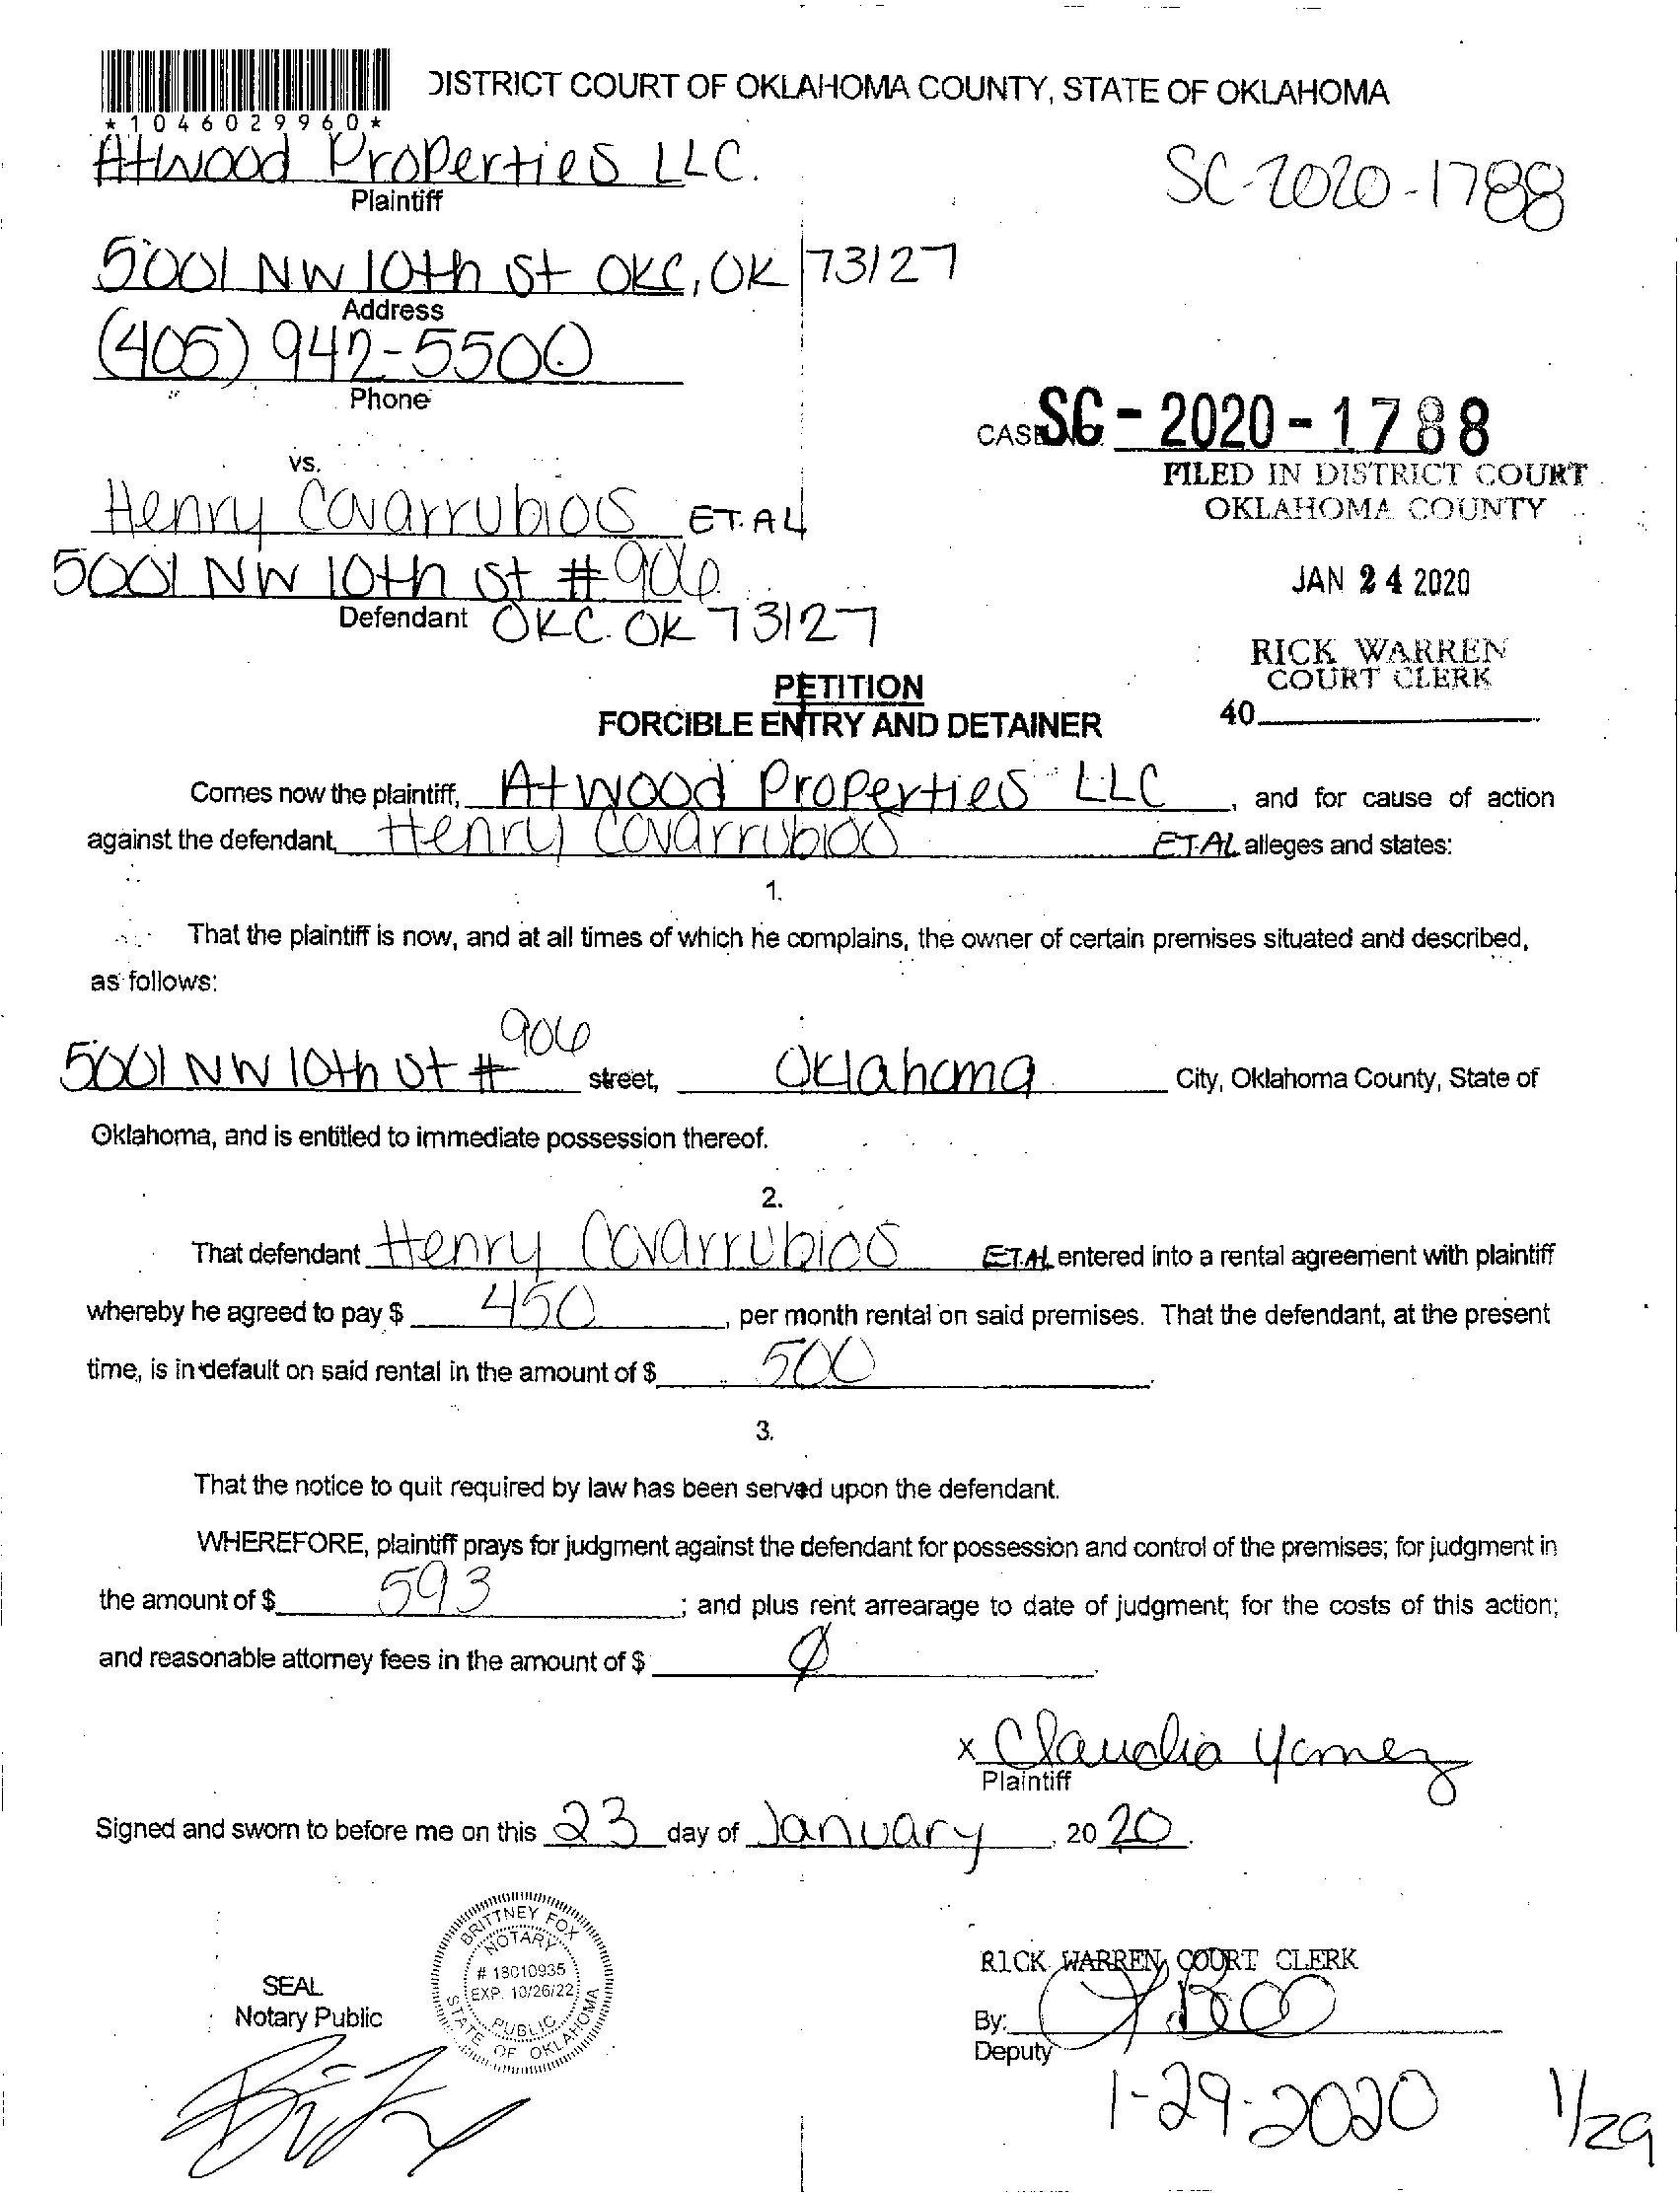 DISTRICT COURT OF OKLAHOMA COUNTY, STATE OF OKLAHOMA
*1046029960*
Atwood Properties LLC.
Plaintiff
SC-2020-1788
5001 NW 10th St OKC, OK 73127
Address
(405) 942-5500
Phone
CASE NO. SC-2020-1788
FILED IN DISTRICT COURT
OKLAHOMA COUNTY
vs.
Henry Covarrubias ET.AL
5001 NW 10th St # 906
JAN 24 2020
Defendant OKC. OK 73127
RICK WARREN
COURT CLERK
40
PETITION
FORCIBLE ENTRY AND DETAINER
Comes now the plaintiff, Atwood Properties LLC, and for cause of action
against the defendant, Henry Covarrubias ET.AL alleges and states:
1.
That the plaintiff is now, and at all times of which he complains, the owner of certain premises situated and described,
as follows:
5001 NW 10th St # 906 street, Oklahoma City, Oklahoma County, State of
Oklahoma, and is entitled to immediate possession thereof.
2.
That defendant Henry Covarrubias ET.AL entered into a rental agreement with plaintiff
whereby he agreed to pay $ 450, per month rental on said premises. That the defendant, at the present
time, is in default on said rental in the amount of $ 500.
3.
That the notice to quit required by law has been served upon the defendant.
WHEREFORE, plaintiff prays for judgment against the defendant for possession and control of the premises; for judgment in
the amount of $ 593; and plus rent arrearage to date of judgment; for the costs of this action;
and reasonable attorney fees in the amount of $ Ø.
x Claudia Yamez
Plaintiff
Signed and sworn to before me on this 23 day of January, 20 20.
BRITTNEY FOX
NOTARY
# 18010935
EXP. 10/26/22
PUBLIC
STATE OF OKLAHOMA
SEAL
Notary Public
RICK WARREN, COURT CLERK
By:
Deputy
1-29-2020
1/29